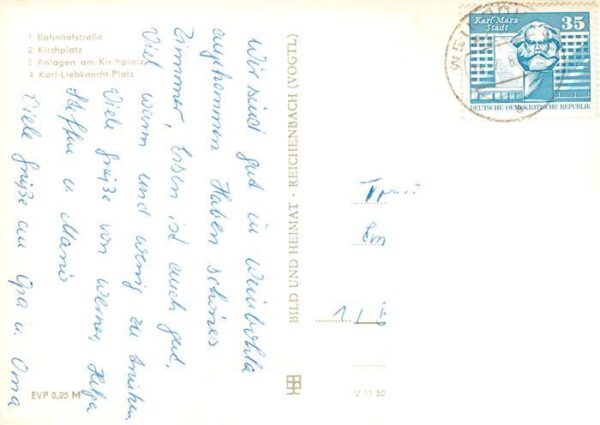 1 Bahnhofstraße
2 Kirchplatz
3 Anlagen am Kirchplatz
4 Karl-Liebknecht-Platz
Wir sind gut in Weinböhla
angekommen. Haben schönes
Zimmer, Essen ist auch gut,
Viel warm und wenig zu trinken.
Viele Grüße von Werner, Helga
Steffen u. Mario
Viele Grüße an Opa u. Oma
EVP 0,25 M
BILD UND HEIMAT · REICHENBACH (VOGTL)
V 11 50
Karl-Marx-
Stadt
35
DEUTSCHE DEMOKRATISCHE REPUBLIK